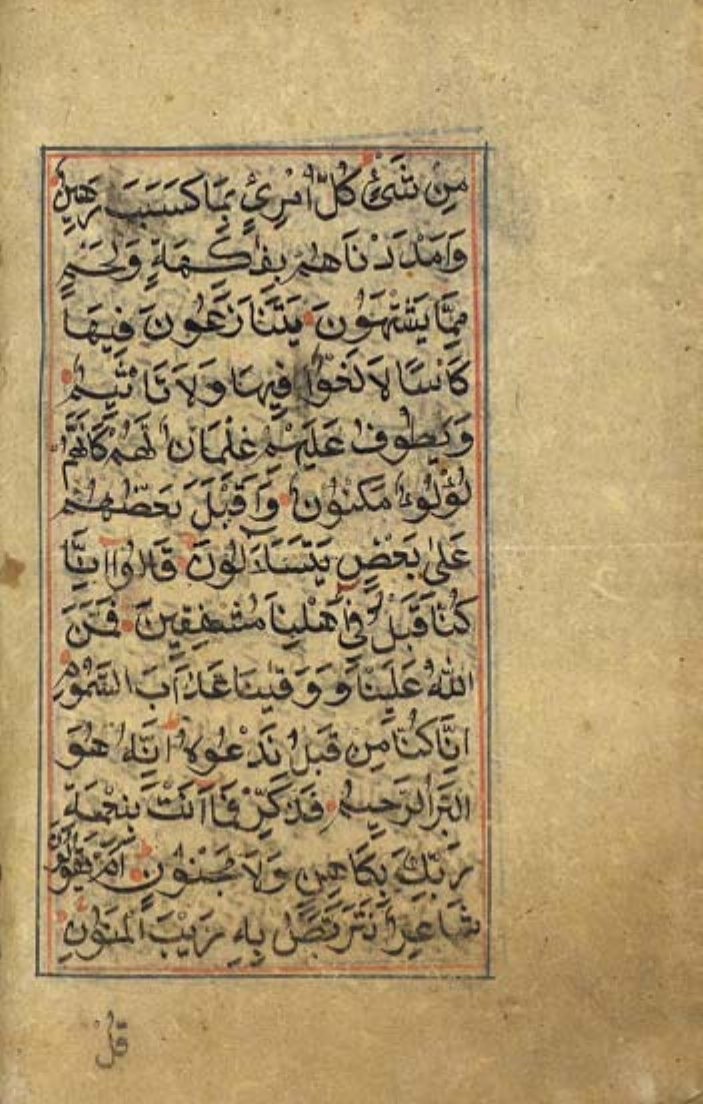 مِنْ شَىْءٍ كُلُّ امْرِئٍ بِمَا كَسَبَ رَهِينٌ
وَاَمْدَدْنَاهُمْ بِفَاكِهَةٍ وَلَحْمٍ
مِمَّا يَشْتَهُونَ يَتَنَازَعُونَ فِيهَا
كَأْسًا لَا لَغْوٌ فِيهَا وَلَا تَأْثِيمٌ
وَيَطُوفُ عَلَيْهِمْ غِلْمَانٌ لَهُمْ كَاَنَّهُمْ
لُؤْلُؤٌ مَكْنُونٌ وَاَقْبَلَ بَعْضُهُمْ
عَلٰى بَعْضٍ يَتَسَاءَلُونَ قَالُوا اِنَّا
كُنَّا قَبْلُ فِى اَهْلِنَا مُشْفِقِينَ فَمَنَّ
اللهُ عَلَيْنَا وَوَقٰينَا عَذَابَ السَّمُومِ
اِنَّا كُنَّا مِنْ قَبْلُ نَدْعُوهُ اِنَّهُ هُوَ
الْبَرُّ الرَّحِيمُ فَذَكِّرْ فَمَا اَنْتَ بِنِعْمَةِ
رَبِّكَ بِكَاهِنٍ وَلَا مَجْنُونٍ اَمْ يَقُولُونَ
شَاعِرٌ نَتَرَبَّصُ بِهِ رَيْبَ الْمَنُونِ
قُلْ